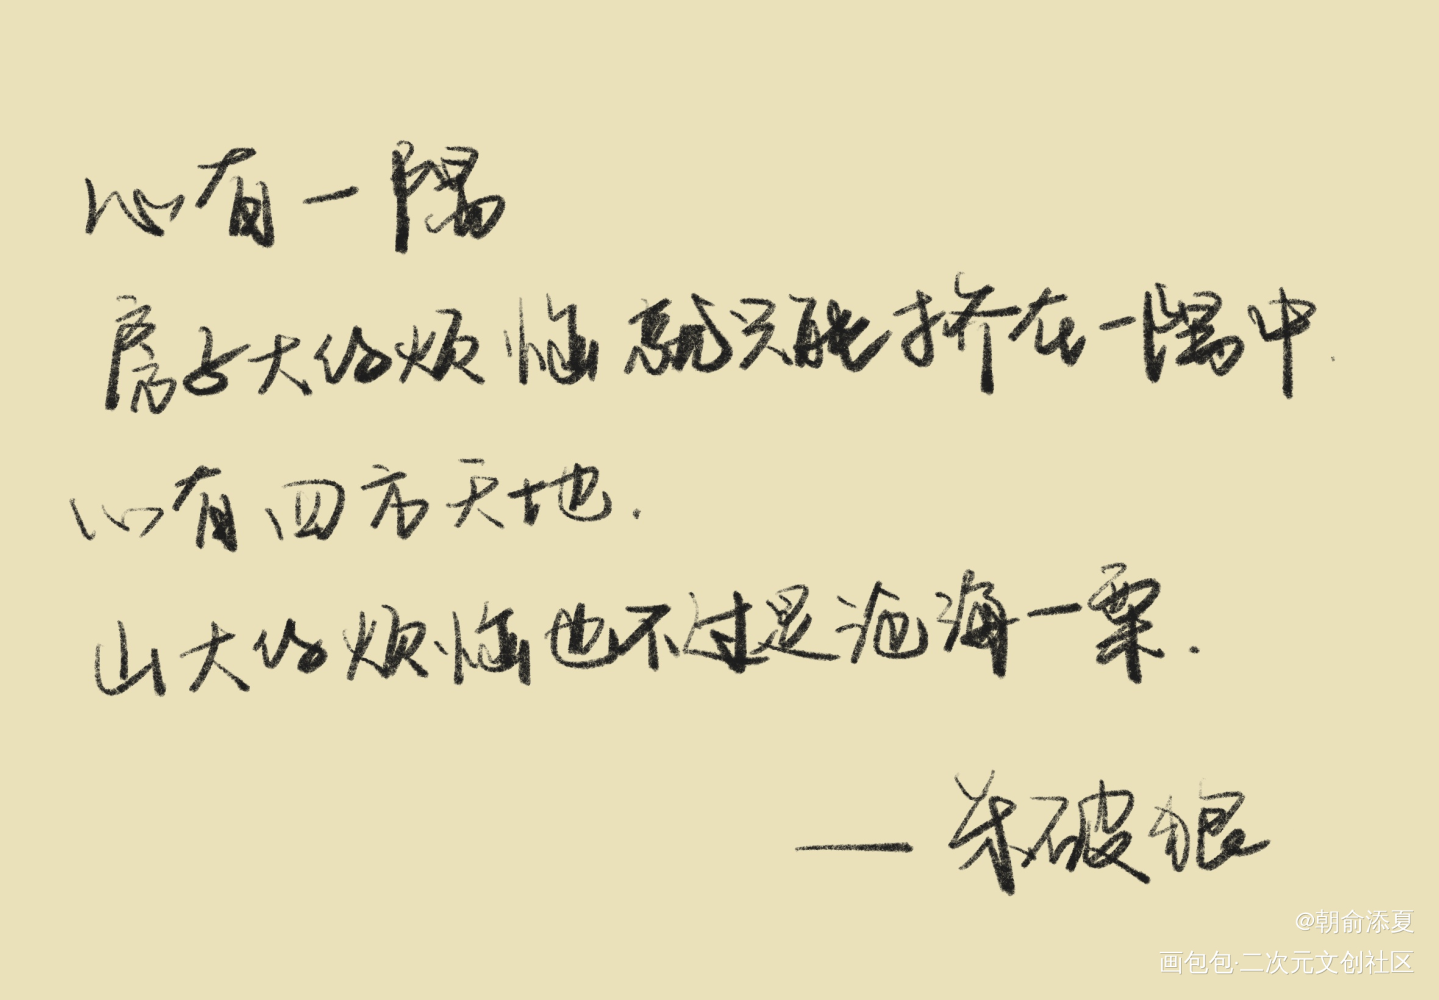 心有一隅
房子大的烦恼就只能挤在一隅中.
心有四方天地.
山大的烦恼也不过是沧海一粟.
——杀破狼
@朝俞添夏
画包包·二次元文创社区